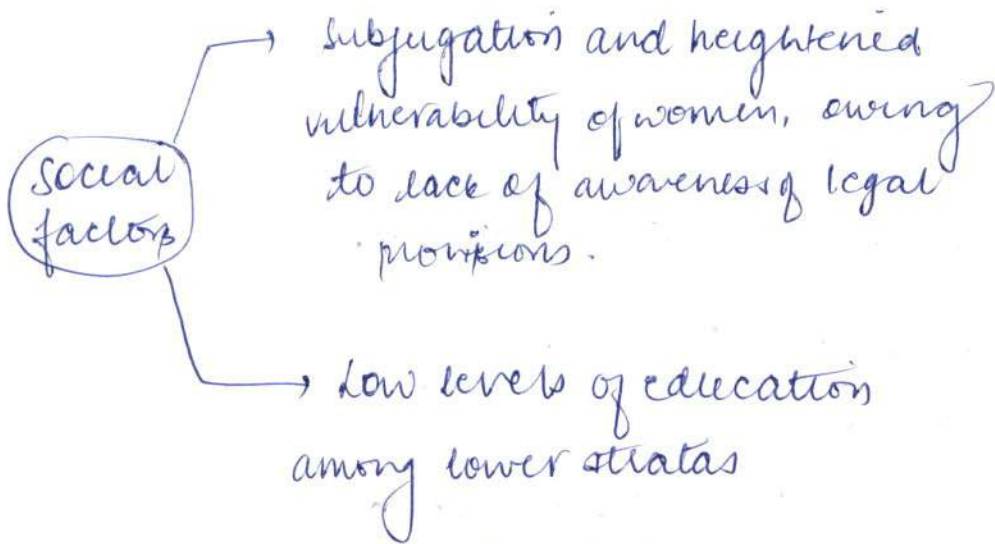 Social
factors
subjugation and heightened
vulnerability of women, owing
to lack of awareness of legal
provisions.
Low levels of education
among lower stratas